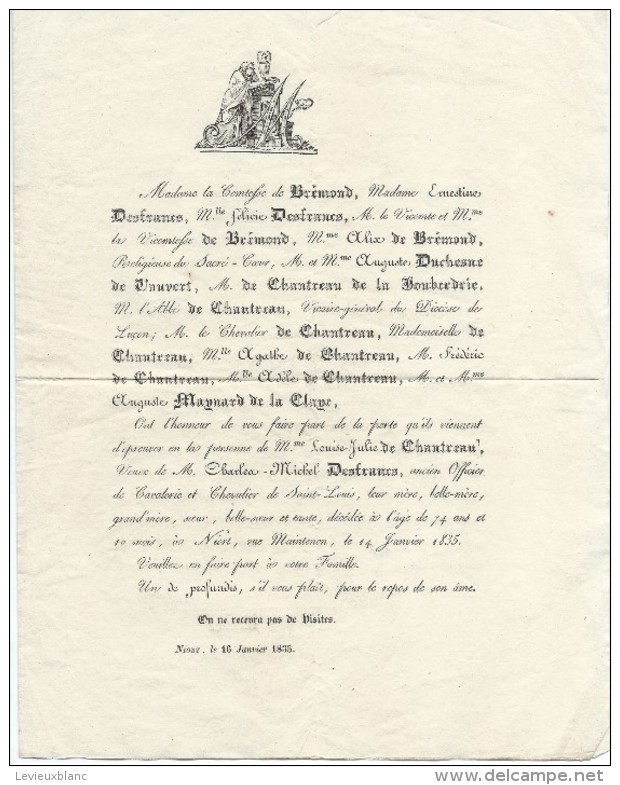 Madame la Comtesse de Brémond, Madame Ernestine
Desfrancs, M.lle Félicie Desfrancs, M. le Vicomte et M.me
la Vicomtesse de Brémond, M.me Alix de Brémond,
Religieuse du Sacré-Cœur, M. et M.me Auguste Duchesne
de Vauvert, M. de Chantreau de la Jouberdrie,
M. l'Abbé de Chantreau, Vicaire-général du Diocèse de
Luçon; M. le Chevalier de Chantreau, Mademoiselle de
Chantreau, M.lle Agathe de Chantreau, M. Frédéric
de Chantreau, M.lle Adèle de Chantreau, M. et M.me
Auguste Maynard de la Claye,
Ont l'honneur de vous faire part de la perte qu'ils viennent
d'éprouver en la personne de M.me Louise-Julie de Chantreau,
Veuve de M. Charles-Michel Desfrancs, ancien Officier
de Cavalerie et Chevalier de Saint-Louis, leur mère, belle-mère,
grand'mère, sœur, belle-sœur et tante, décédée à l'âge de 74 ans et
10 mois, à Niort, rue Maintenon, le 14 Janvier 1835.
Veuillez en faire part à votre Famille.
Un de profundis, s'il vous plaît, pour le repos de son âme.
On ne recevra pas de Visites.
Niort, le 16 Janvier 1835.
Levieuxblanc
delcampe.net